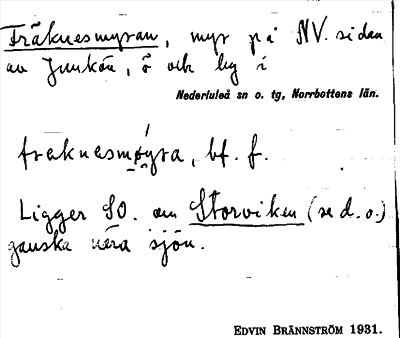 Fräknesmyran, myr på NV. sidan
av Junkön, ö och by i
Nederluleå sn o. tg, Norrbottens län.
fræknesmøyra, bf. f.
Ligger SO. om Storviken (se d. o.)
ganska nära sjön.
EDVIN BRÄNNSTRÖM 1931.